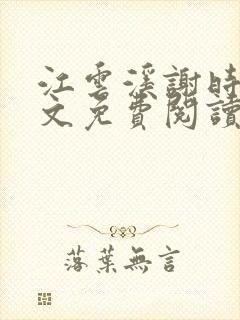 江雲溪謝時
文免費閱讀
落葉無言